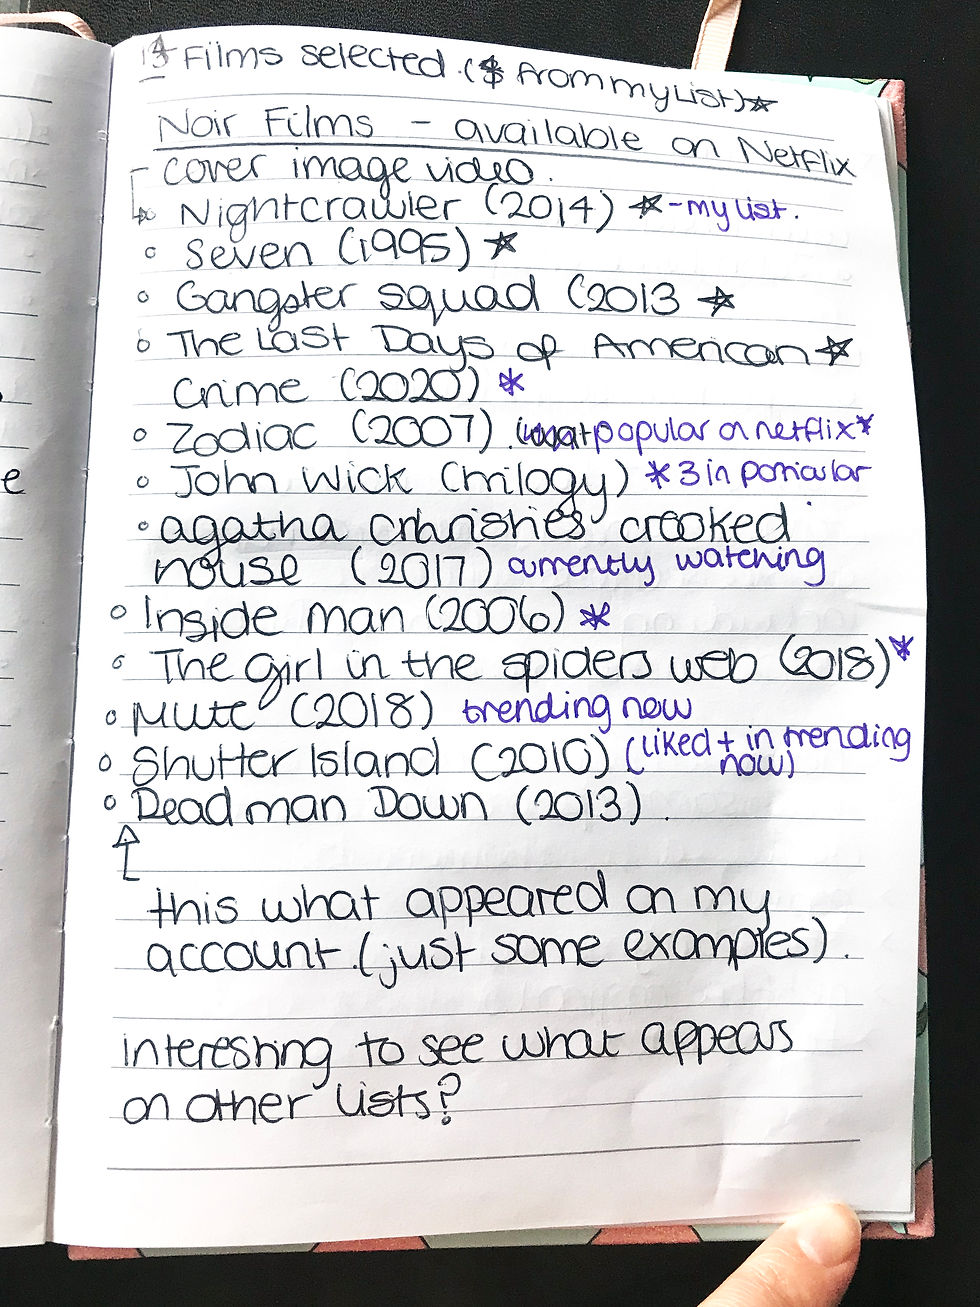 Films selected. ( from my List) ☆
Noir Films - available on Netflix
- cover image video.
Nightcrawler (2014) ☆ - my list.
◦ Seven (1995) ☆
◦ Gangster squad (2013 ☆
◦ The Last Days of American ☆
Crime (2020) *
◦ Zodiac (2007) popular on netflix *
◦ John Wick (trilogy) * 3 in particular
◦ agatha christies crooked
house (2017) currently watching
◦ Inside man (2006) *
◦ The girl in the spiders web (2018) *
◦ Mute (2018) trending now
◦ Shutter Island (2010) (liked + in trending
now)
◦ Dead man Down (2013).
this what appeared on my
account. (just some examples).
interesting to see what appears
on other lists?
e